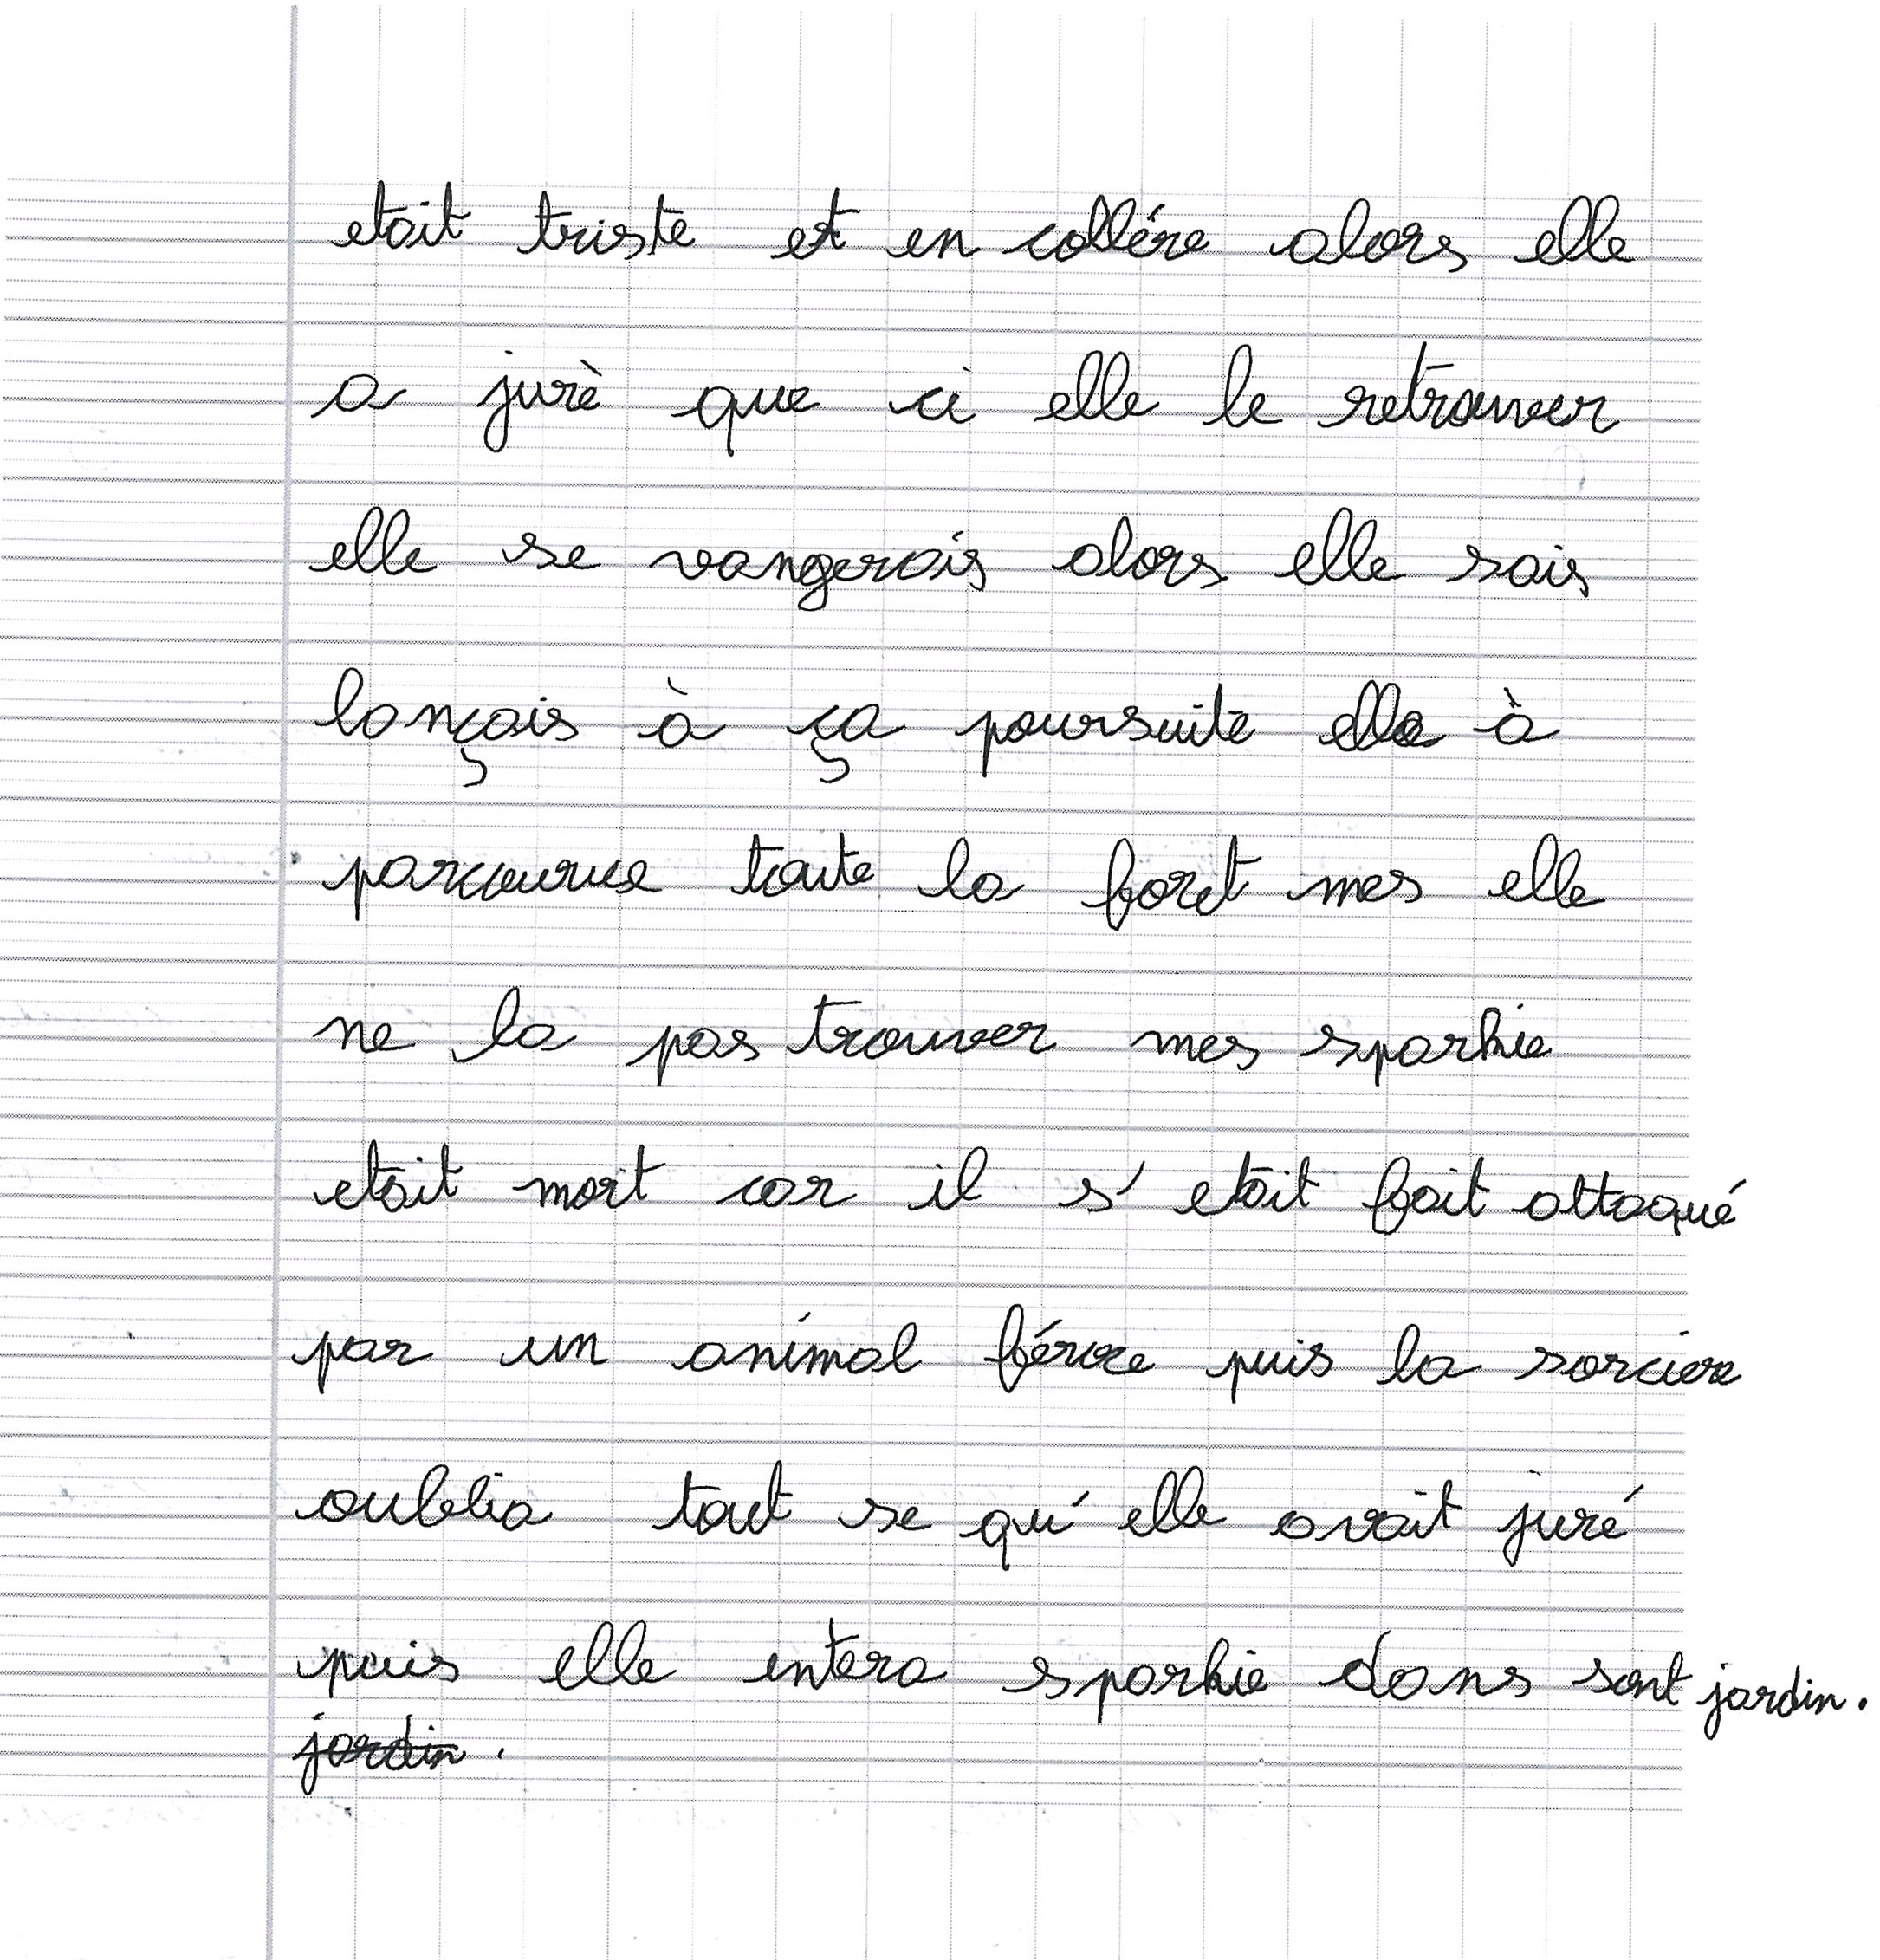 etait triste et en collére alors elle
a jurè que ci elle le retrouver
elle se vangerais alors elle sais
lançais à ça poursuite elle à
parcourue toute la foret mes elle
ne la pas trouver mes sparkie
etait mort car il s' etait fait attaqué
par un animal féroce puis la sorciere
oublia tout se qu' elle avait juré
puis elle entera sparkie dans sont jardin.
jardin.